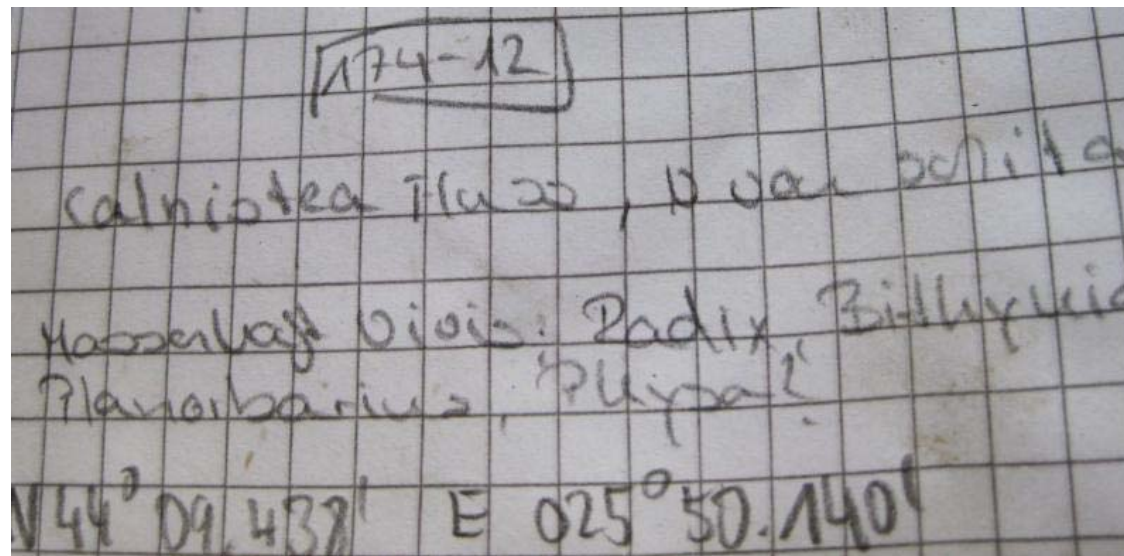 174-12
Calnistea Fluss, N von Schita
Massenhaft Vivip. Radix, Bithynia
Planorbarius, Physa?
N 44° 09.438' E 025° 50.140'